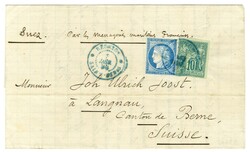 Par les messageries maritimes Françaises
Monsieur Joh. Ulrich Joost.
à Langnau,
Canton de Berne
Suisse.